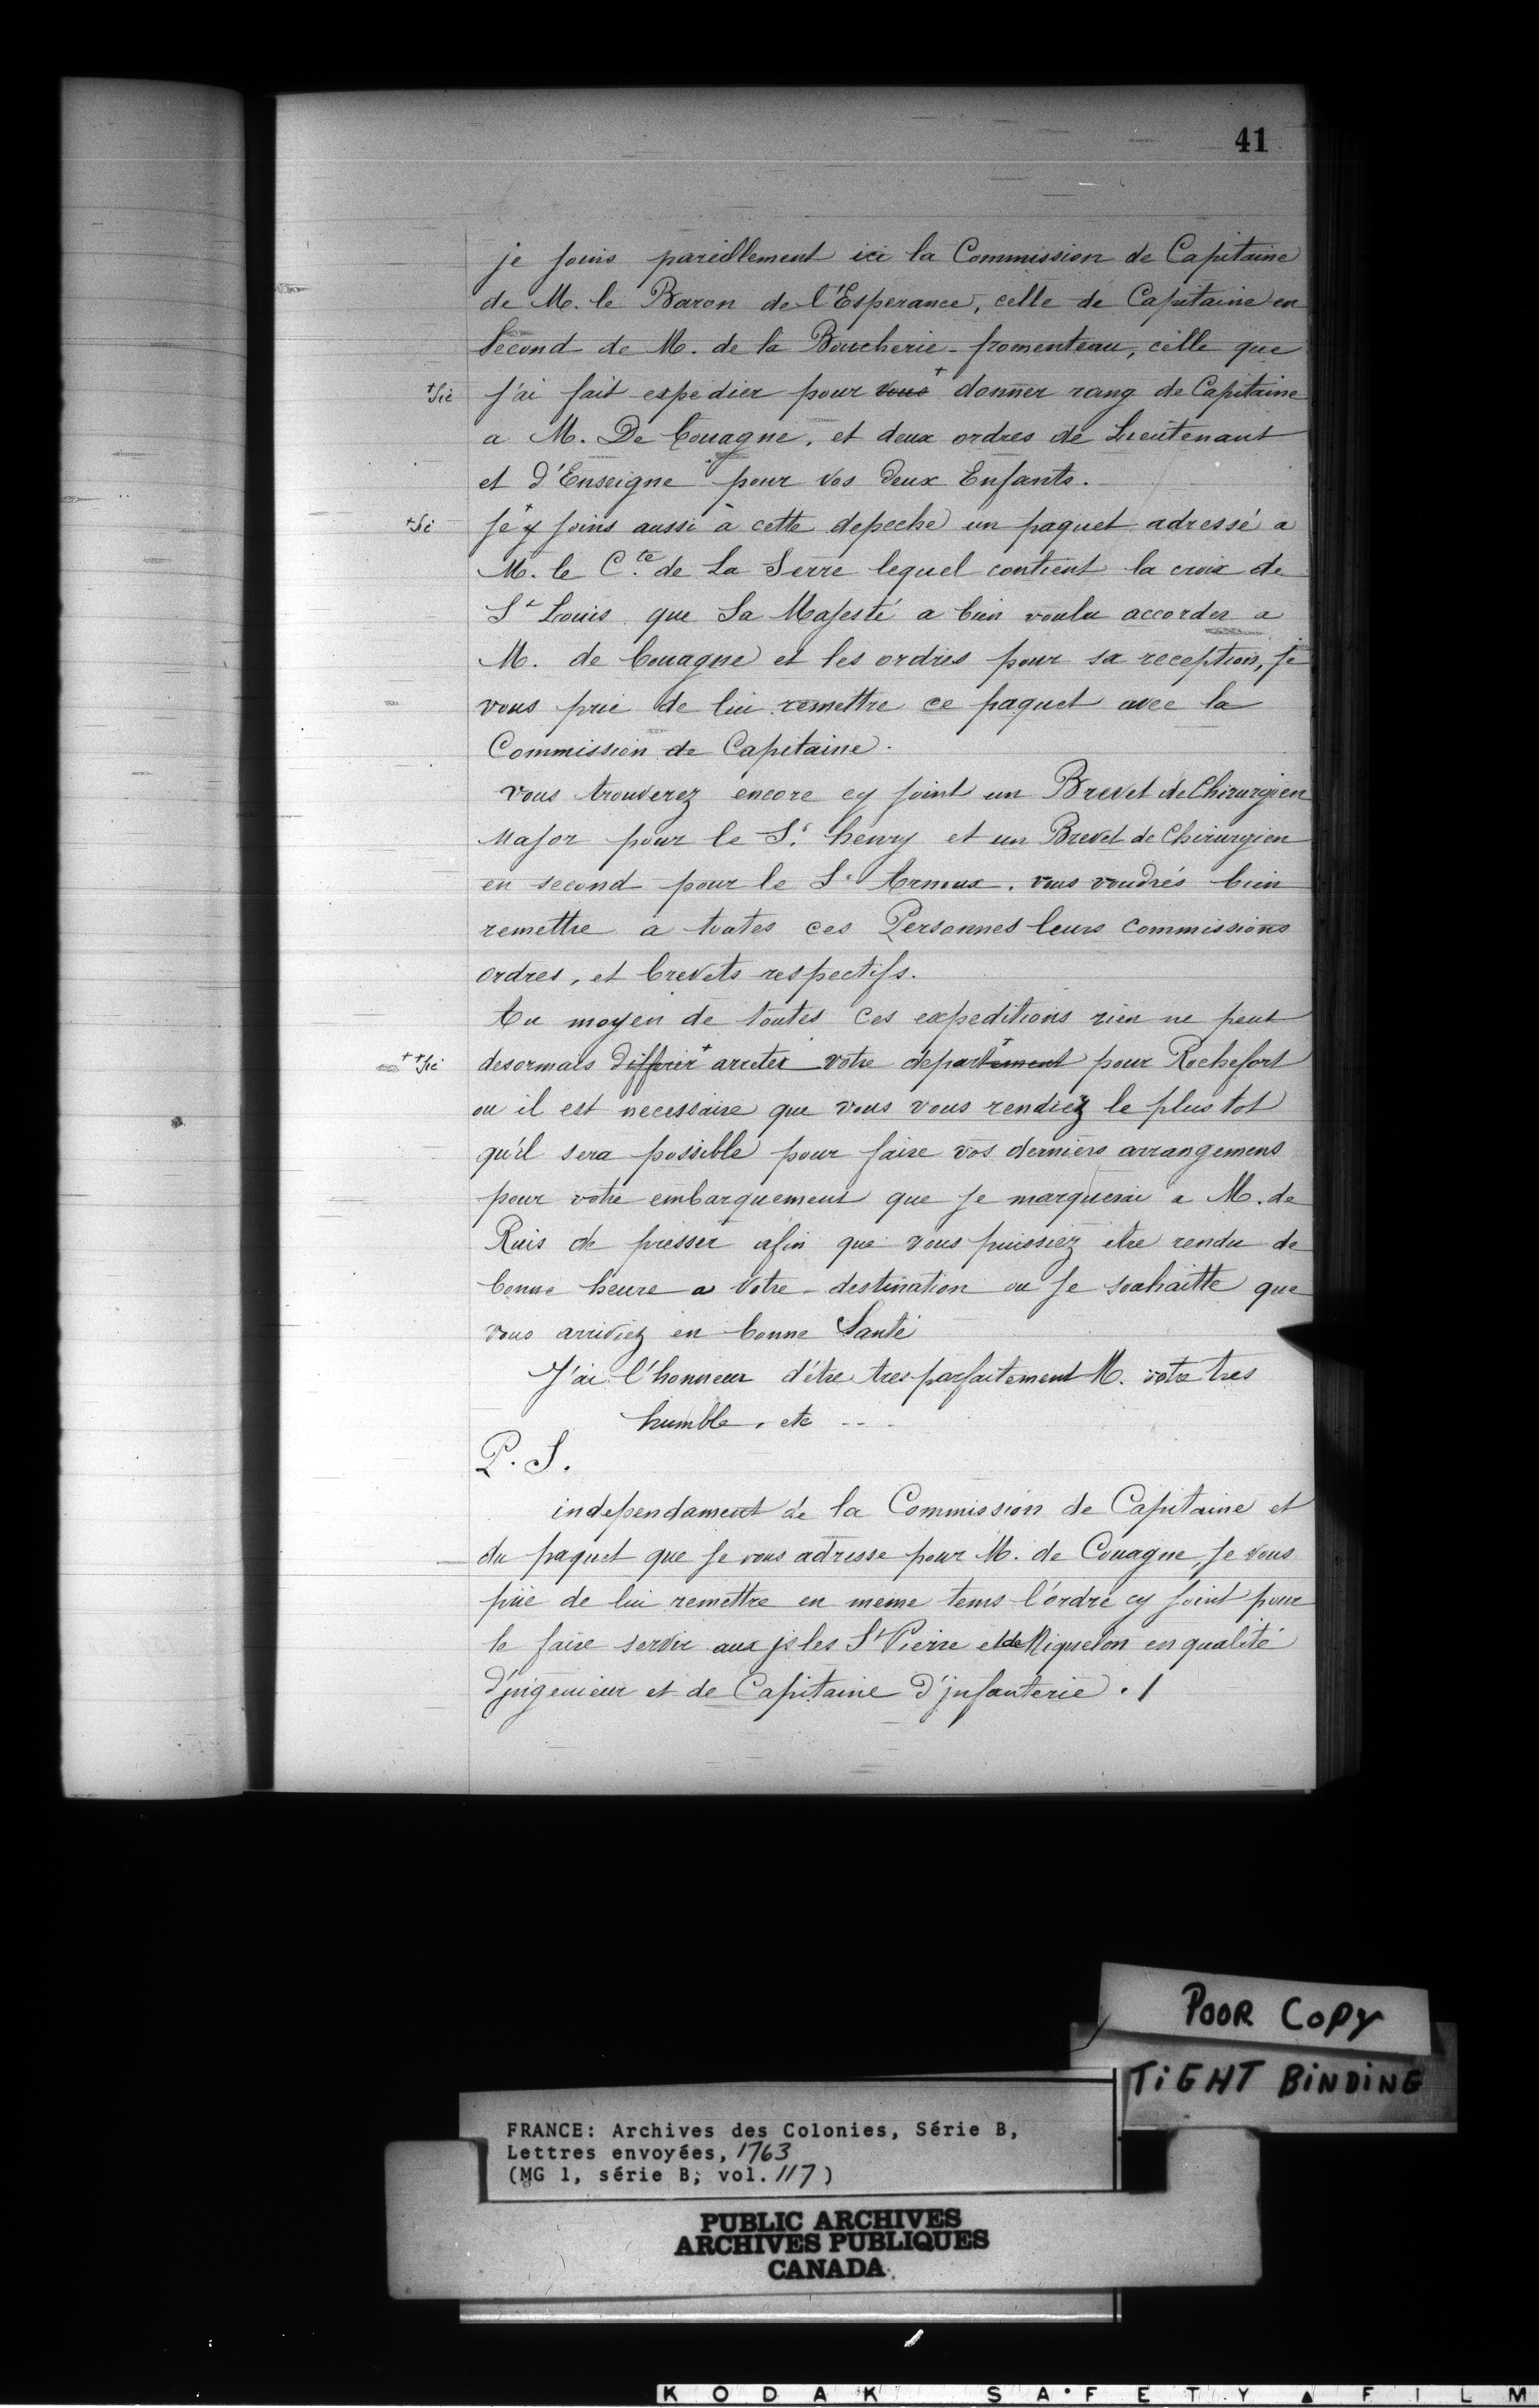 41
je joins pareillement ici la Commission de Capitaine
de M. le Baron de l'Esperance, celle de Capitaine en
Second de M. de la Boucherie-fromenteau, celle que
+Sic j'ai fait expedier pour vous+ donner rang de Capitaine
a M. De Couagne, et deux ordres de Lieutenant
et d'Enseigne pour vos deux Enfants.
+Sic je+ y joins aussi à cette depeche un paquet adressé a
M. le Cte de La Serre lequel contient la croix de
St Louis que Sa Majesté a bien voulu accorder a
M. de Couagne et les ordres pour sa reception, je
vous prie de lui remettre ce paquet avec la
Commission de Capitaine.
vous trouverez encore cy joint un Brevet de Chirurgien
Major pour le Sr. henry et un Brevet de Chirurgien
en second pour le Sr. . vous voudrés bien
remettre a toutes ces Personnes leurs commissions
ordres, et brevets respectifs.
Au moyen de toutes ces expeditions rien ne peut
++Sic desormais differer+ arreter votre departement+ pour Rochefort
ou il est necessaire que vous vous rendiez le plus tot
qu'il sera possible pour faire vos derniers arrangemens
pour votre embarquement que je marquerai a M. de
Ruis de presser afin que vous puissiez etre rendu de
bonne heure a votre destination ou je souhaitte que
vous arriviez en bonne Santé
J'ai l'honneur d'être tres parfaitement M. votre tres
humble, etc ...
P. S.
independament de la Commission de Capitaine et
du paquet que je vous adresse pour M. de Couagne, je vous
prie de lui remettre en meme tems l'ordre cy joint pour
le faire servir aux jsles St Pierre et de Miquelon en qualité
d'jngenieur et de Capitaine d'jnfanterie ./
POOR COPY
TIGHT BINDING
FRANCE: Archives des Colonies, Série B,
Lettres envoyées, 1763
(MG 1, série B; vol. 117)
PUBLIC ARCHIVES
ARCHIVES PUBLIQUES
CANADA
KODAK SAFETY ▲ FILM